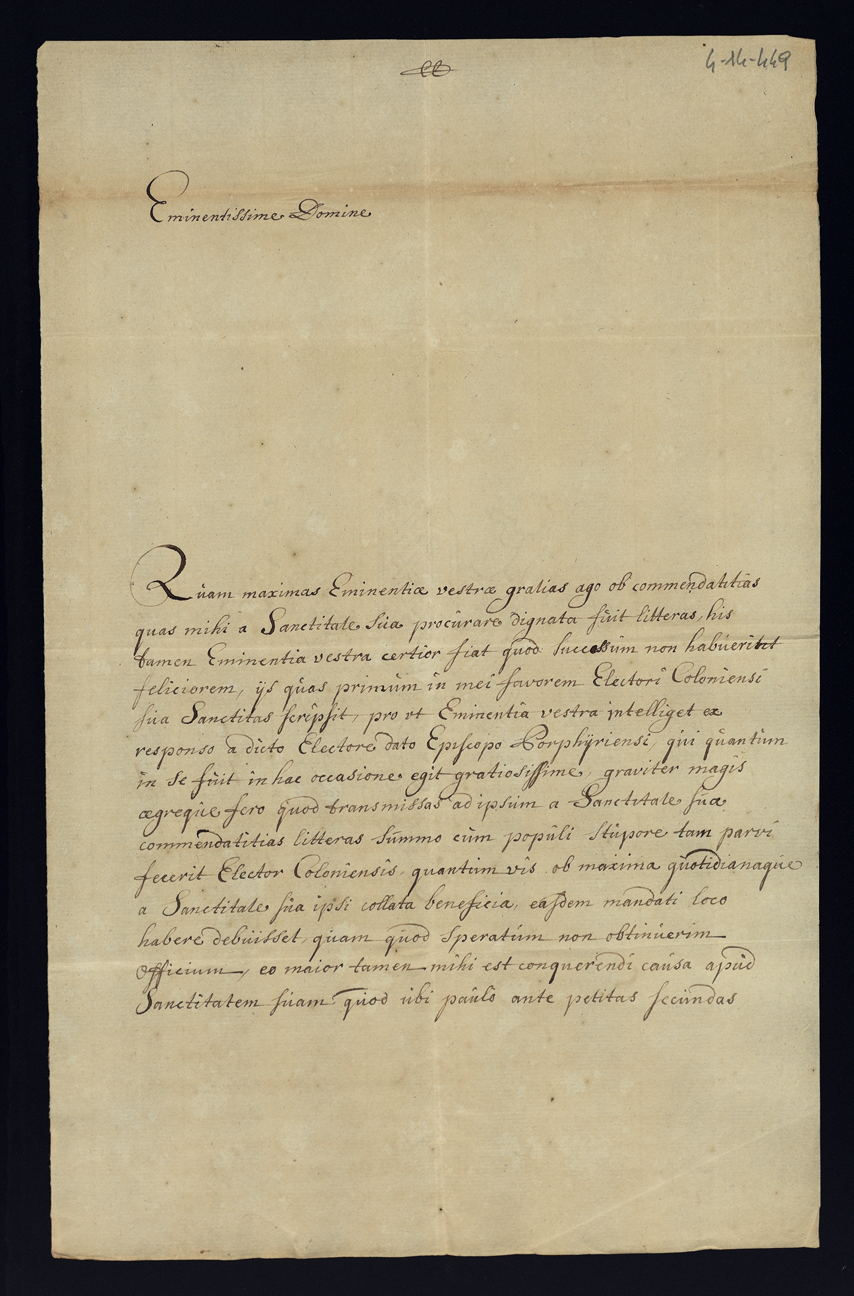 4-14-449
Eminentissime Domine
Quam maximas Eminentiæ vestræ gratias ago ob commendatitias
quas mihi a Sanctitate sua procurare dignata fuit litteras, his
tamen Eminentia vestra certior fiat quod successum non habuerint
feliciorem, ijs quas primum in mei favorem Electori Coloniensi
sua Sanctitas scripsit, pro vt Eminentia vestra intelliget ex
responso a dicto Electore dato Episcopo Porphyriensi, qui quantum
in se fuit in hac occasione egit gratiosissime, graviter magis
ægreque fero quod transmissas ad ipsum a Sanctitate sua
commendatitias litteras summo cum populi stupore tam parvi
fecerit Elector Coloniensis, quantum vis ob maxima quotidianaque
a Sanctitate sua ipsi collata beneficia, easdem mandati loco
habere debuisset, quam quod speratum non obtinuerim
officium, eo maior tamen mihi est conquerendi causa apud
Sanctitatem suam quod ubi paulo ante petitas secundas